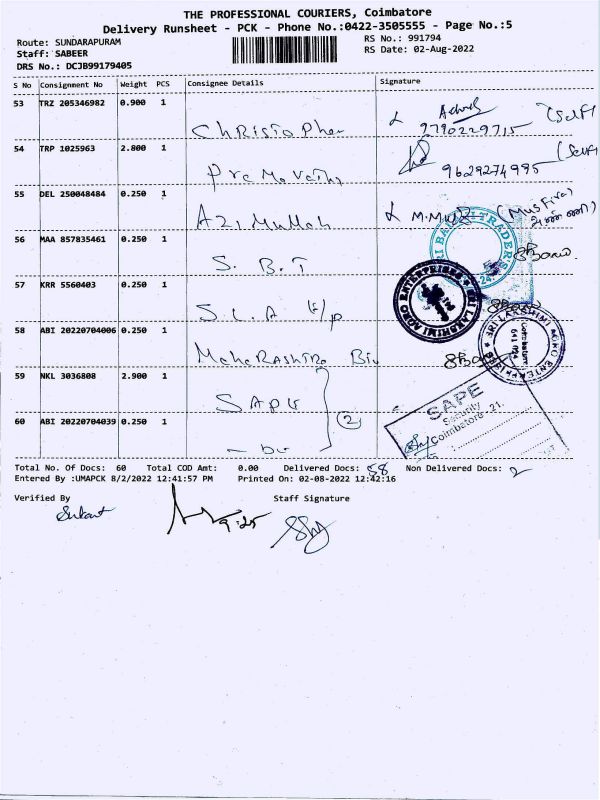 THE PROFESSIONAL COURIERS, Coimbatore
Delivery Runsheet - PCK - Phone No.:0422-3505555 - Page No.:5
Route: SUNDARAPURAM
RS No.: 991794
Staff: SABEER
RS Date: 02-Aug-2022
DRS No.: DCJB99179405
S No Consignment No Weight PCS Consignee Details Signature
53 TRZ 205346982 0.900 1
Christopher 9790229715 (Self)
54 TRP 1025963 2.800 1
Premavathi 9629274995 (Self)
55 DEL 250048484 0.250 1
Azimullah
56 MAA 857835461 0.250 1
S. B. T
57 KRR 5560403 0.250 1
S. L. A
58 ABI 20220704006 0.250 1
59 NKL 3036808 2.900 1
2
60 ABI 20220704039 0.250 1
SRI LAKSHMI AGRO ENTERPRISES
SRI LAKSHMI AGRO ENTERPRISES
Coimbatore
641 024
SAPE
Security
Coimbatore - 21.
Total No. Of Docs: 60 Total COD Amt: 0.00 Delivered Docs: 58 Non Delivered Docs: 2
Entered By :UMAPCK 8/2/2022 12:41:57 PM Printed On: 02-08-2022 12:42:16
Verified By Staff Signature